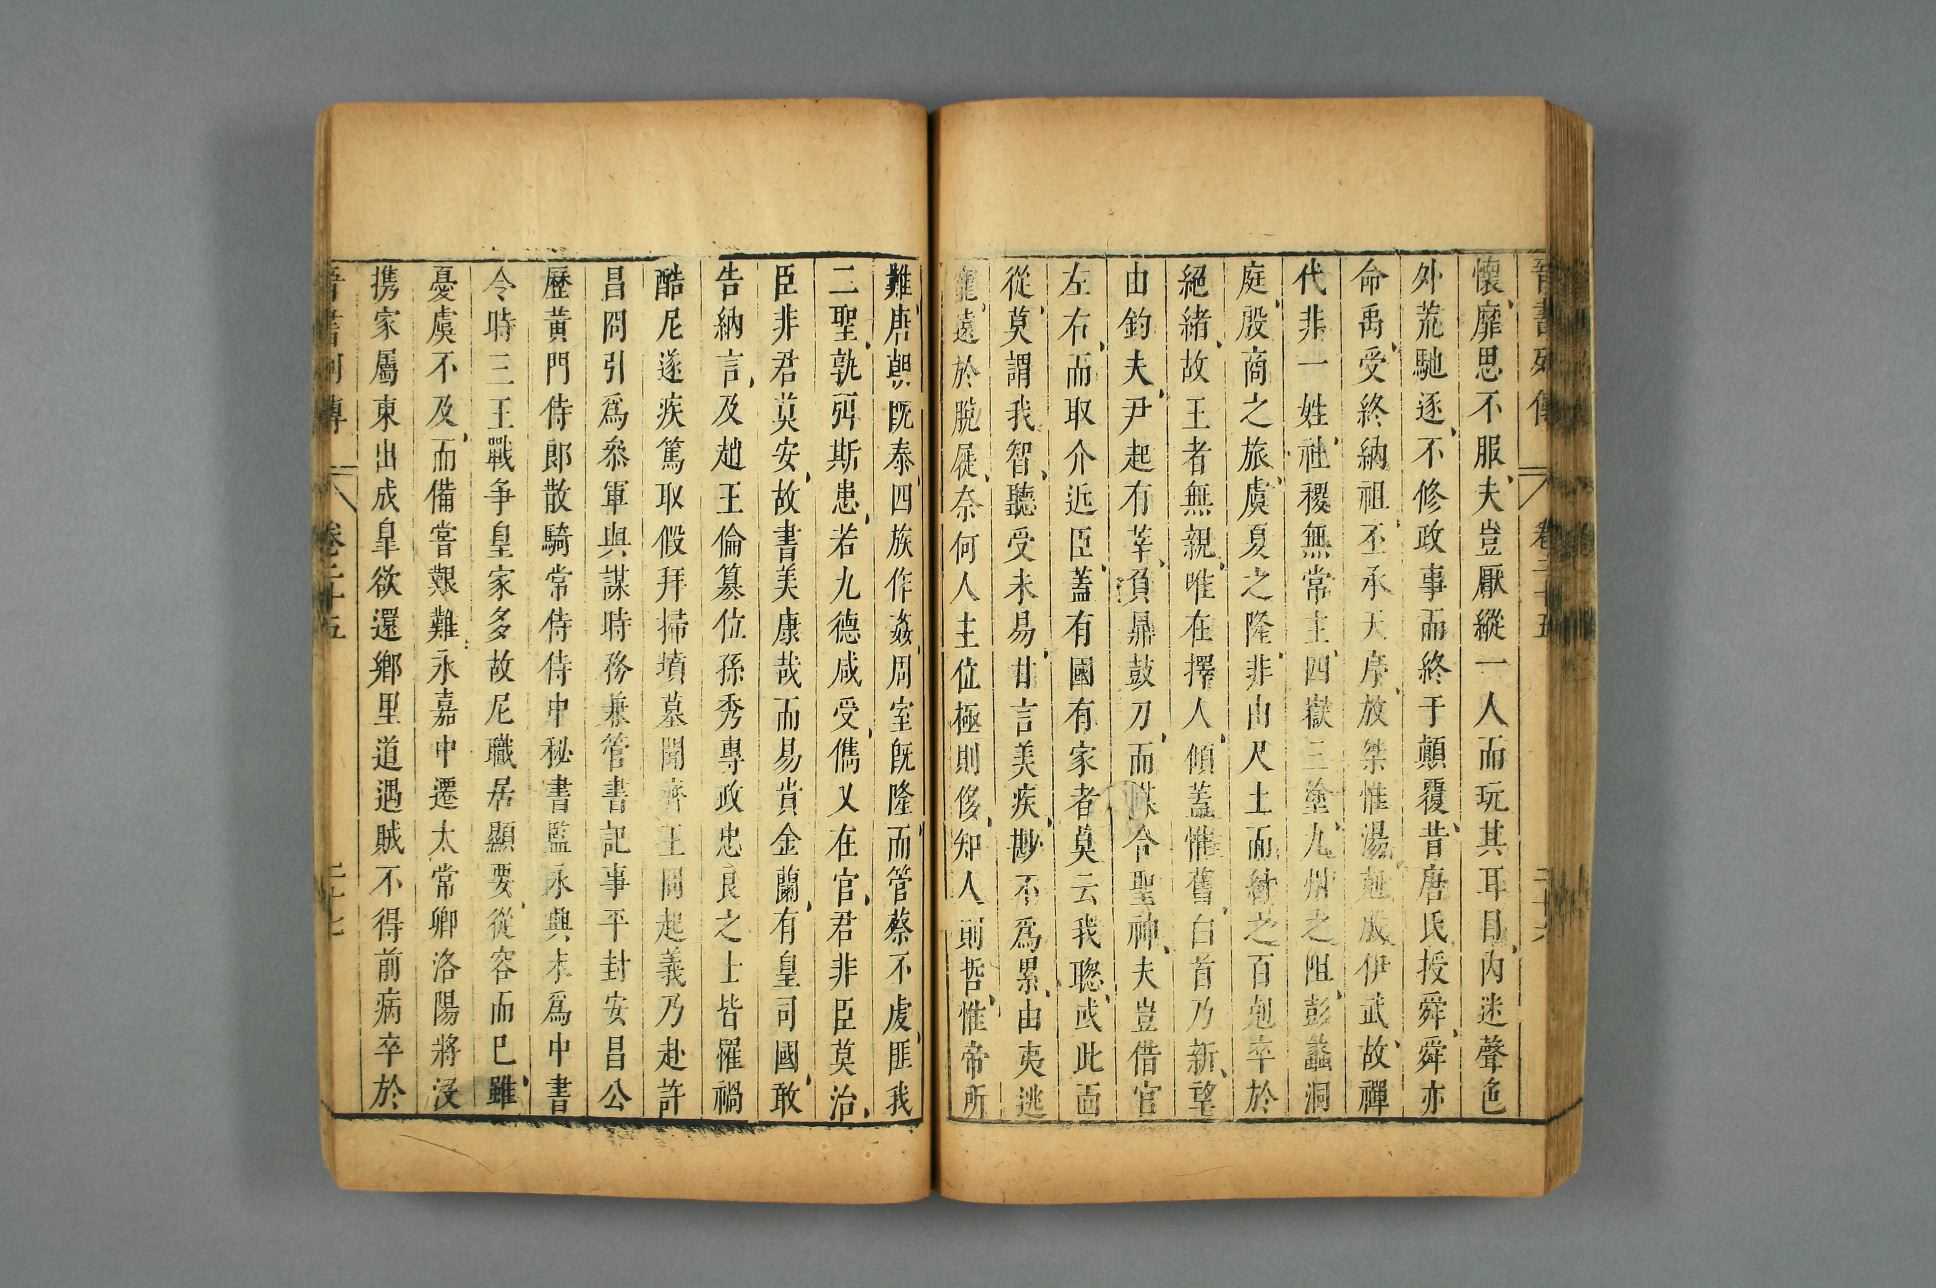 晉書列傳 卷二十五 二十六
懷靡思不服夫豈厭縱一人而玩其耳目內迷聲色
外荒馳逐不修政事而終于顛覆昔唐氏授舜舜亦
命禹受終納祖丕承天序放桀惟湯剋殷伊武故禪
代非一姓社稷無常主四嶽三塗九州之阻彭蠡洞
庭殷商之旅虞夏之隆非由尺土而紂之百剋卒於
絕緒故王者無親唯在擇人傾蓋惟舊白首乃新望
由釣夫尹起有莘負鼎鼓刀而謀合聖神夫豈借官
左右而取介近臣蓋有國有家者莫云我聰或此面
從莫謂我智聽受未易甘言美疾尠不爲累由夷逃
寵遠於脫屣奈何人主位極則侈知人則哲惟帝所
難唐朝旣泰四族作姦周室旣隆而管蔡不虔匪我
二聖孰弭斯患若九德咸受儁乂在官君非臣莫治
臣非君莫安故書美康哉而易貴金蘭有皇司國敢
告納言及趙王倫簒位孫秀專政忠良之士皆罹禍
酷尼遂疾篤取假拜掃墳墓聞齊王冏起義乃赴許
昌冏引爲叅軍與謀時務兼管書記事平封安昌公
歷黃門侍郎散騎常侍侍中秘書監永興末爲中書
令時三王戰爭皇家多故尼職居顯要從容而已雖
憂虞不及而備嘗艱難永嘉中遷太常卿洛陽將沒
携家屬東出成臯欲還鄉里道遇賊不得前病卒於
晉書列傳 卷二十五 二十七